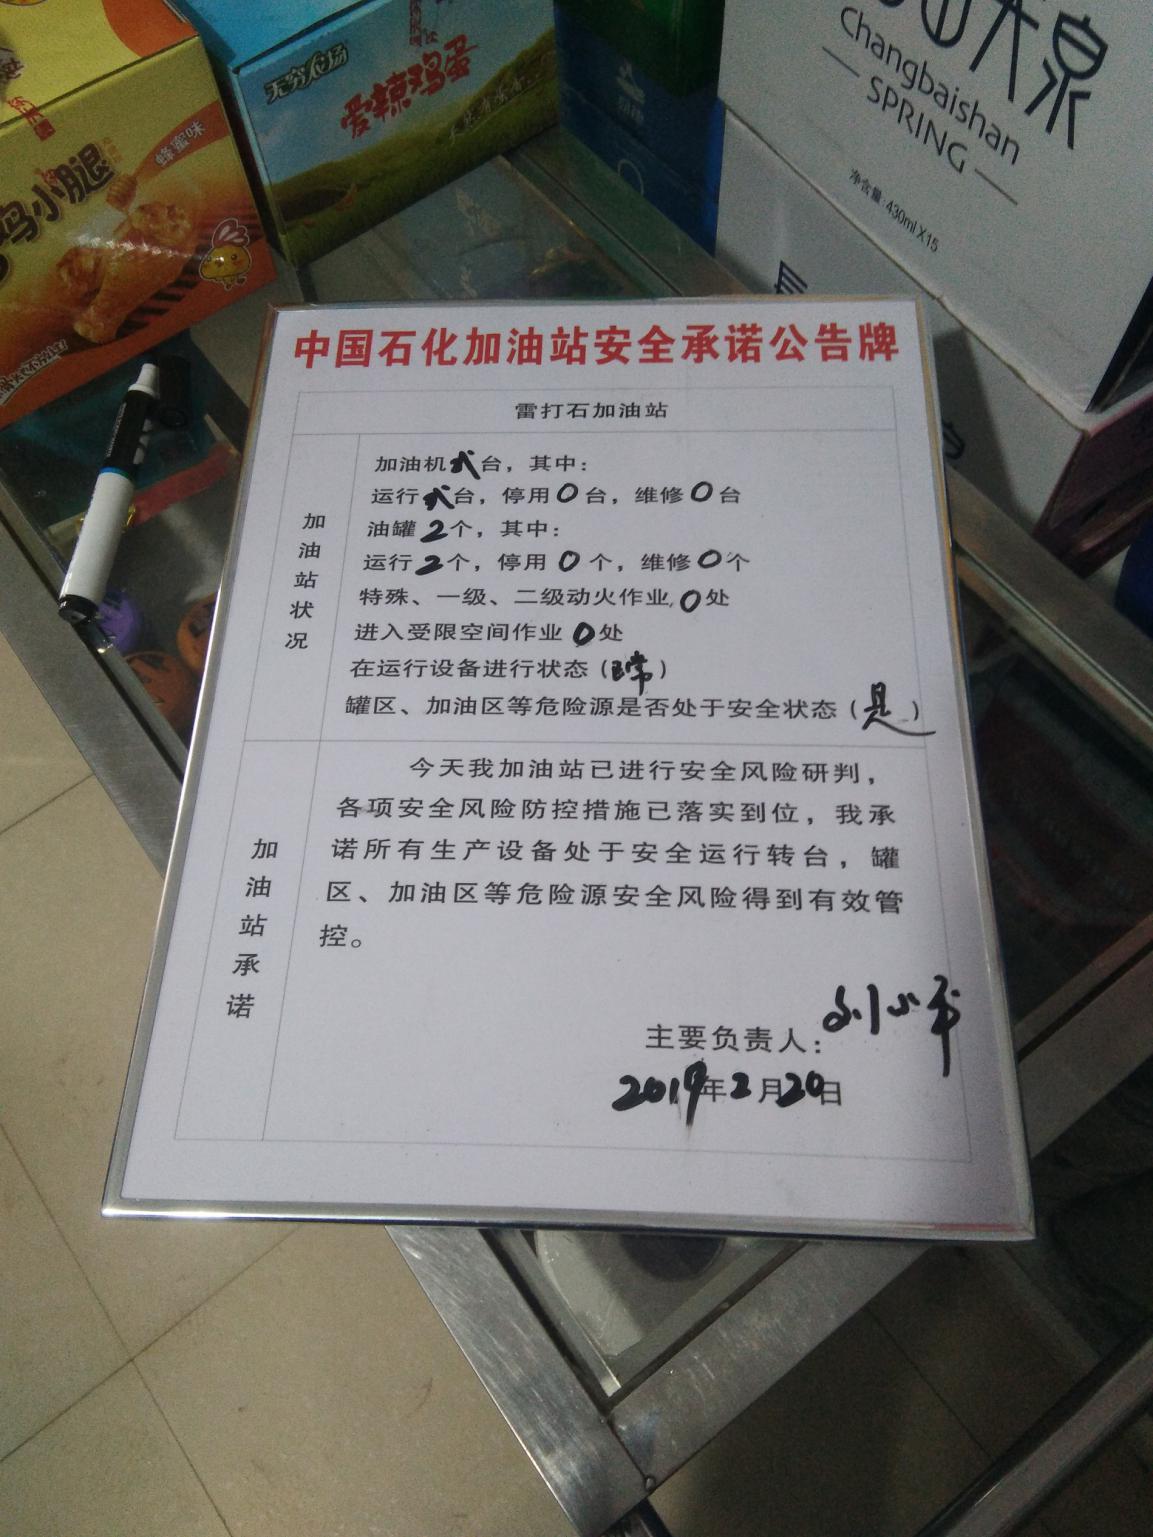 无穷农场
爱辣鸡蛋
小腿
蜂蜜味
Changbaishan
SPRING
净含量:430mlX15
中国石化加油站安全承诺公告牌
雷打石加油站
加油站状况
加油机 台，其中：
运行 台，停用0台，维修0台
油罐2个，其中：
运行2个，停用0个，维修0个
特殊、一级、二级动火作业，0处
进入受限空间作业0处
在运行设备进行状态（正常）
罐区、加油区等危险源是否处于安全状态（是）
加油站承诺
今天我加油站已进行安全风险研判，
各项安全风险防控措施已落实到位，我承
诺所有生产设备处于安全运行转台，罐
区、加油区等危险源安全风险得到有效管
控。
主要负责人：刘小平
2019年2月20日